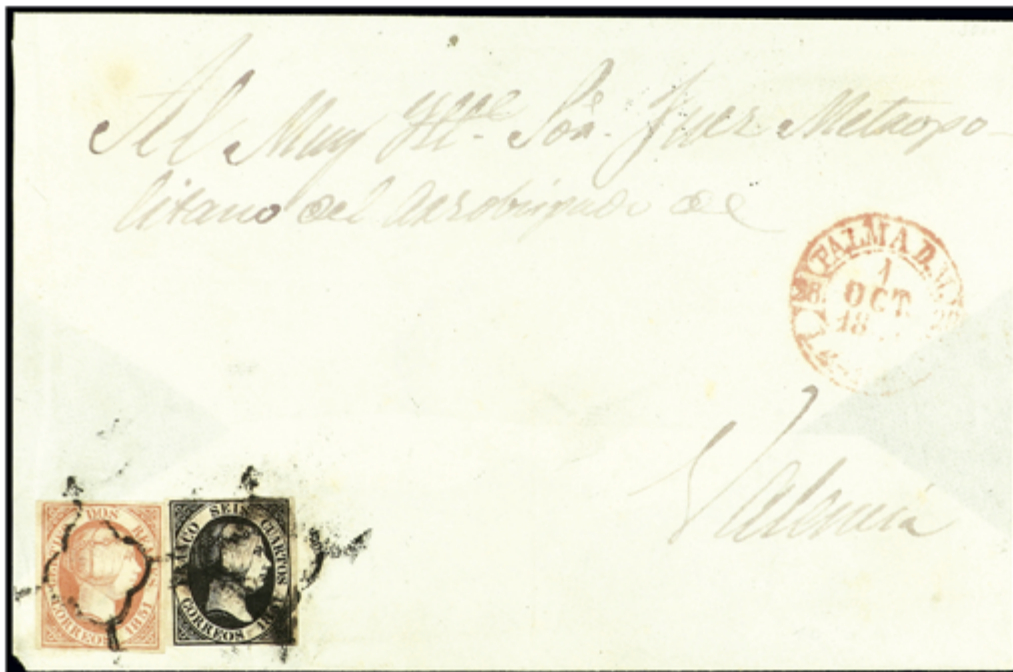 Al Muy Ille. Sor. Juez Metropo-
litano del Arzobispado de
PALMA D. M.
1
OCT
18
Valencia
DOS
CORREOS 1851
FRANCO SEIS CUARTOS
CORREOS